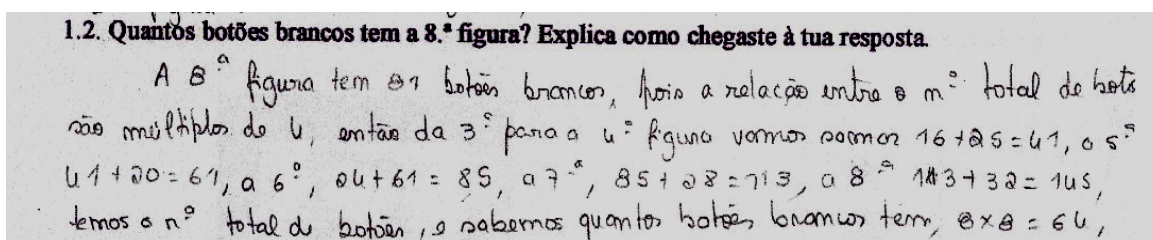 1.2. Quantos botões brancos tem a 8.ª figura? Explica como chegaste à tua resposta.
A 8ª figura tem 81 botões brancos, pois a relação entre o nº total de botõ
são múltiplos de 4, então da 3ª para a 4ª figura vamos somar 16+25=41, a 5ª
41+20=61, a 6ª, 24+61=85, a 7ª, 85+28=113, a 8ª 113+32=145,
temos o nº total de botões, e sabemos quantos botões brancos tem, 8×8=64,